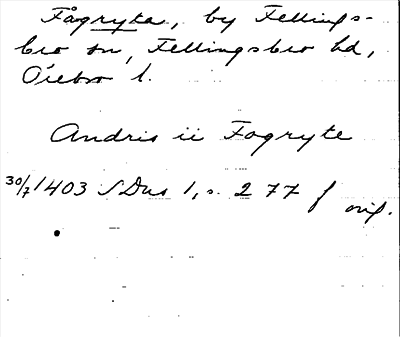 Fågryta, by Fellings-
bro sn, Fellingsbro hd,
Örebro l.
Andris ii Fogryte
30/7 1403 SDns 1, s. 277 f orig.